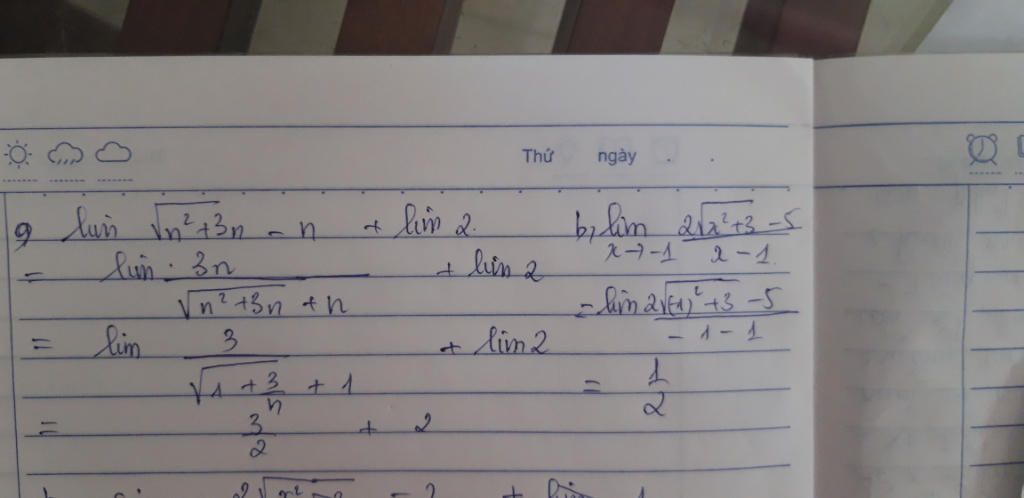 Thứ ngày . .
a, lim √(n²+3n) - n + lim 2
= lim 3n / (√(n²+3n) + n) + lim 2
= lim 3 / (√(1 + 3/n) + 1) + lim 2
= 3/2 + 2
b, lim x→-1 (2√(x²+3) - 5) / (x - 1)
= lim (2√((-1)²+3) - 5) / (-1 - 1)
= 1/2